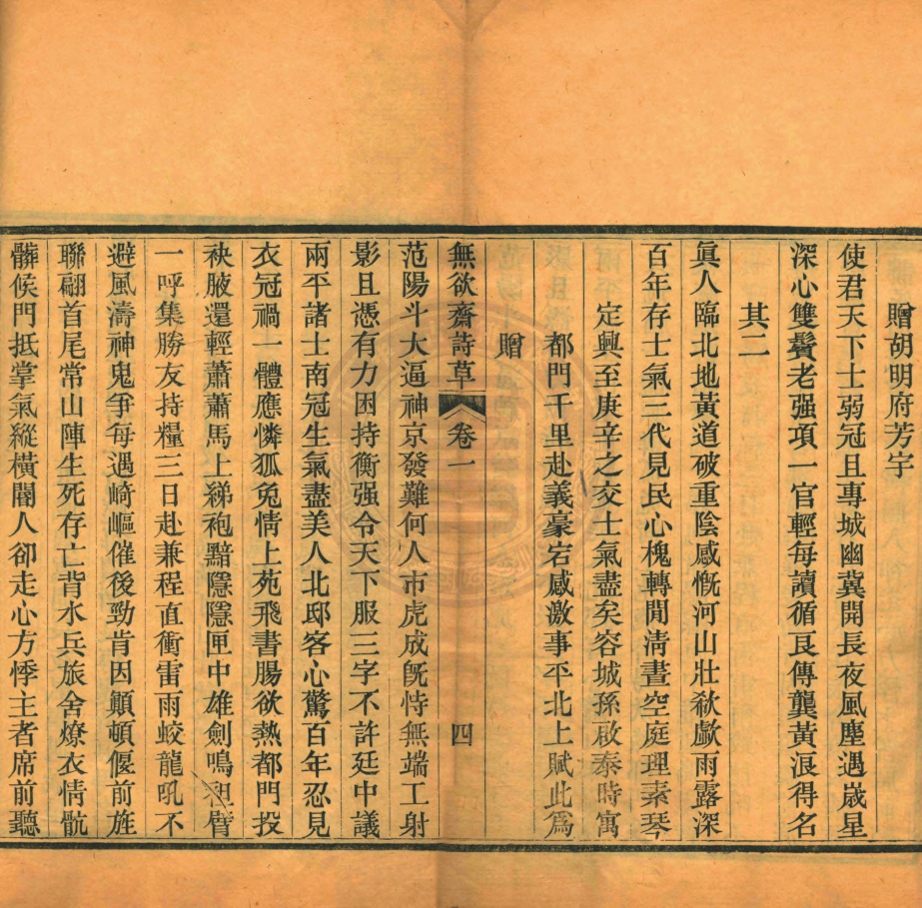 贈胡明府芳宇
使君天下士弱冠且專城幽冀開長夜風塵遇歲星
深心雙鬢老强項一官輕每讀循良傳龔黃浪得名
其二
眞人臨北地黃道破重陰感慨河山壯欷歔雨露深
百年存士氣三代見民心槐轉閒淸晝空庭理素琴
定興至庚辛之交士氣盡矣容城孫啟泰時寓
都門千里赴義豪宕感激事平北上賦此爲
贈
無欲齋詩草 卷一 四
范陽斗大逼神京發難何人市虎成旣恃無端工射
影且憑有力困持衡强令天下服三字不許廷中議
兩平諸士南冠生氣盡美人北邸客心驚百年忍見
衣冠禍一體應憐狐兔情上苑飛書腸欲熱都門投
袂腋還輕蕭蕭馬上綈袍黯隱隱匣中雄劍鳴袒臂
一呼集勝友持糧三日赴兼程直衝雷雨蛟龍吼不
避風濤神鬼爭每遇崎嶇催後勁肯因顚頓偃前旌
聯翩首尾常山陣生死存亡背水兵旅舍燎衣情骯
髒侯門抵掌氣縱橫閽人卻走心方悸主者席前聽